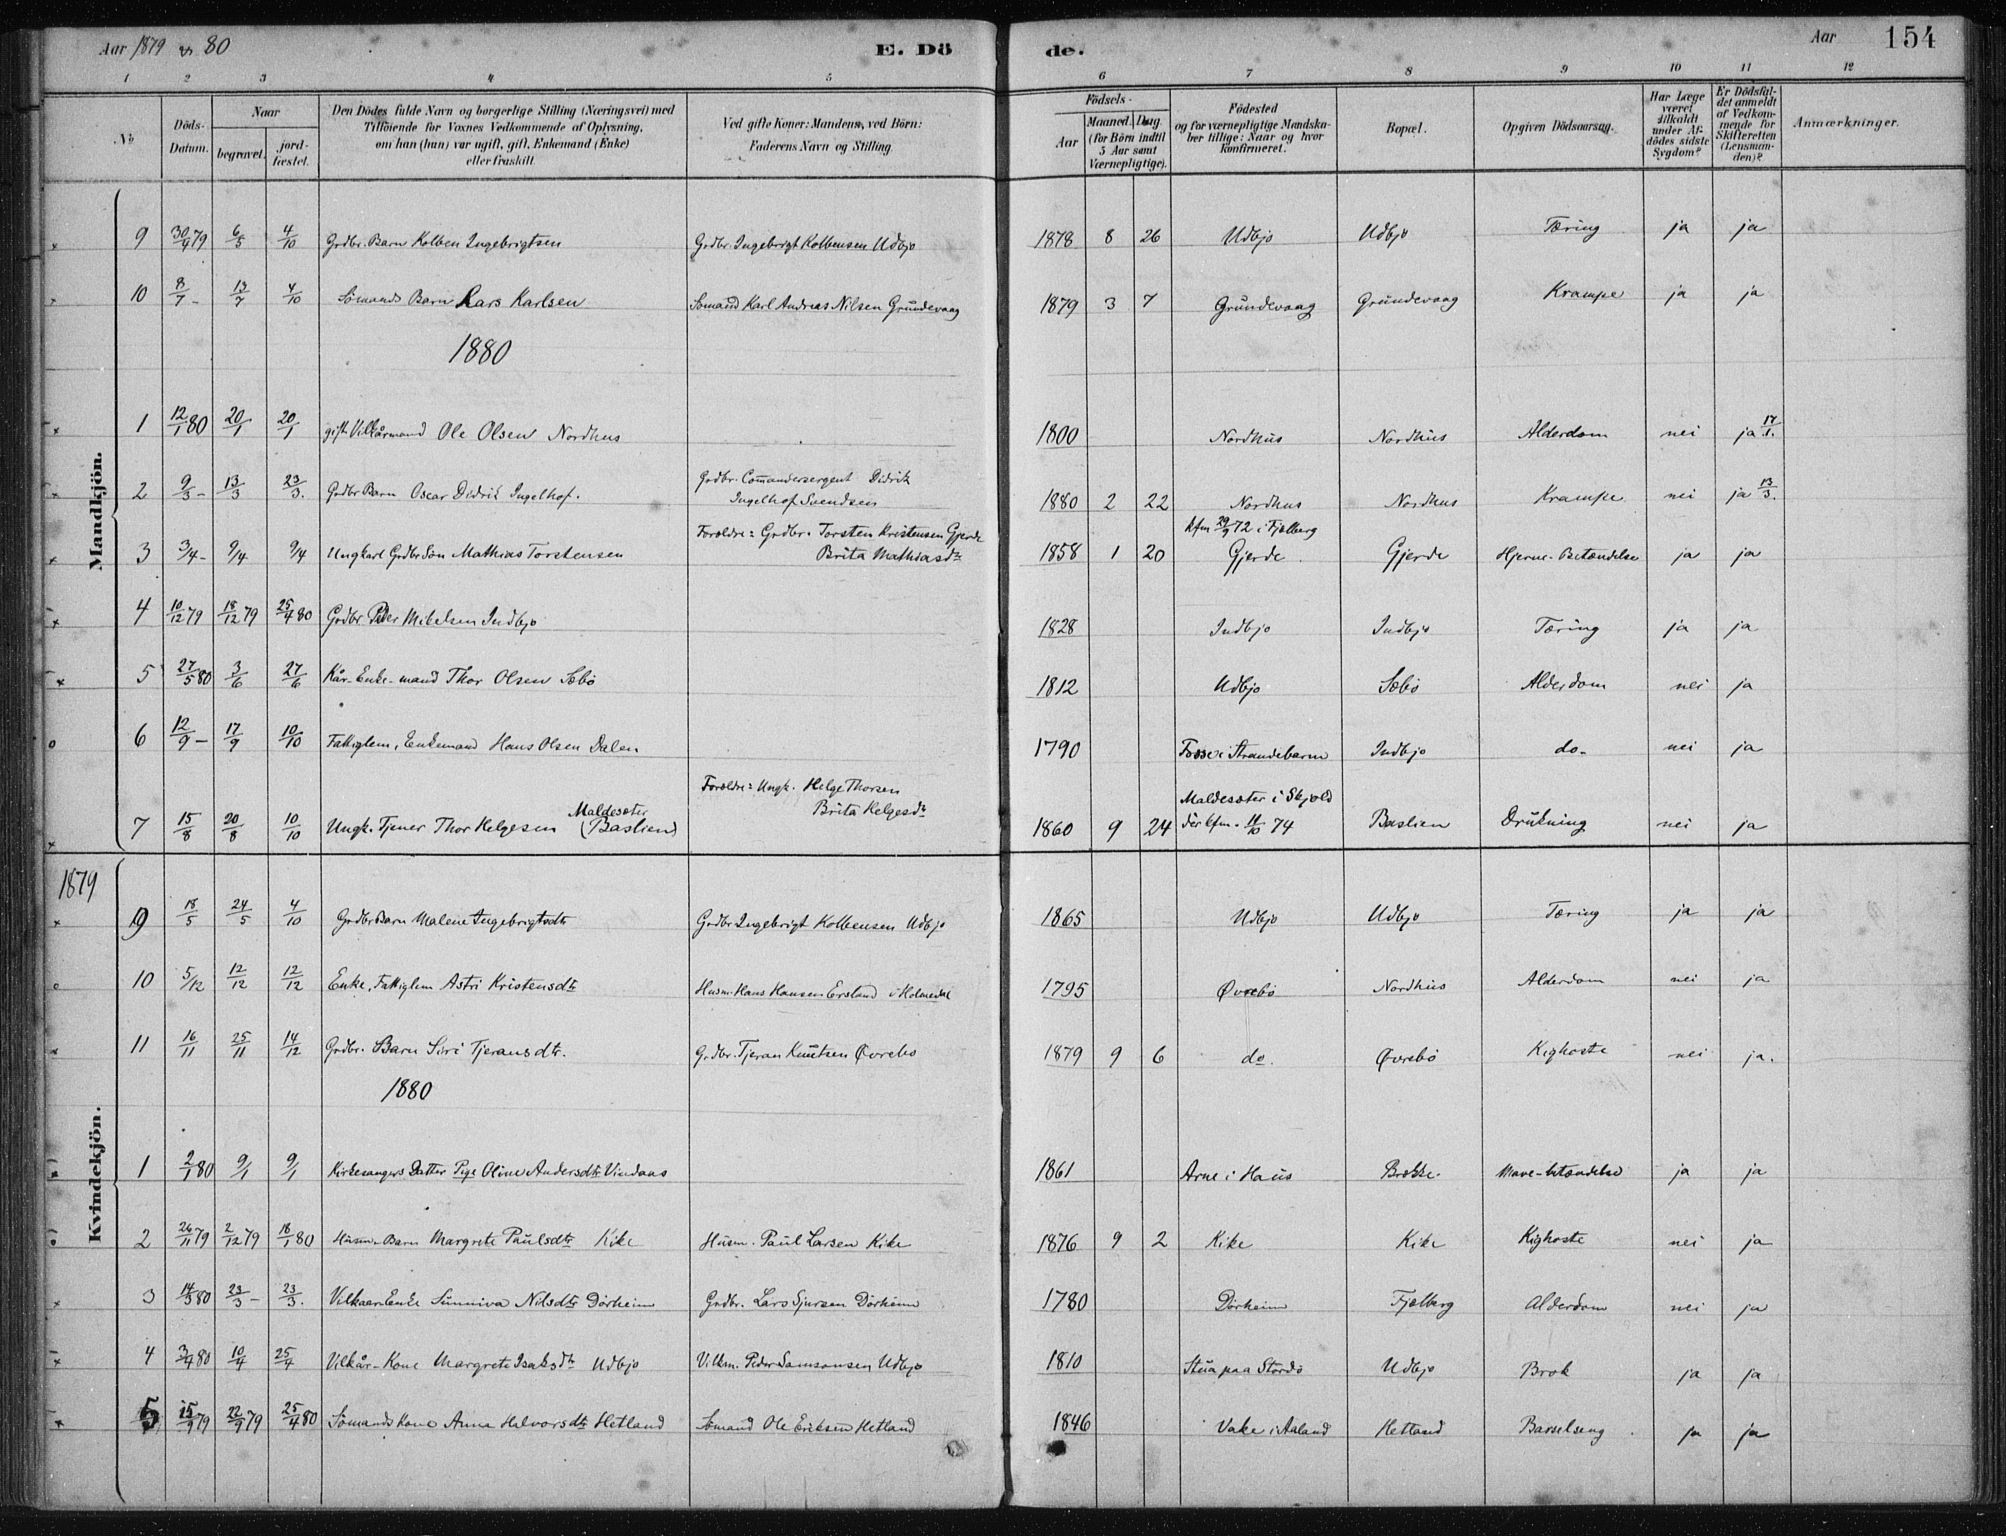 Aar 1879 og 80 E. Döde. Aar 154
1 2 3 4 5 6 7 8 9 10 11 12
№ Döds-Datum. Naar begravet. jordfæstet. Den Dödes fulde Navn og borgerlige Stilling (Næringsvei) med Tilföiende for Voxnes Vedkommende af Oplysning, om han (hun) var ugift, gift, Enkemand (Enke) eller fraskilt. Ved gifte Koner: Mandens, ved Börn: Faderens Navn og Stilling. Födsels- Aar Maaned. Dag. (for Börn indtil 5 Aar samt Værnepligtige). Födested og for værnepligtige Mandskaber tillige: Naar og hvor konfirmeret. Bopæl. Opgiven Dödsaarsag. Har Læge været tilkaldt under Afdödes sidste Sygdom? Er Dödsfaldet anmeldt af Vedkommende for Skifteretten (Lensmanden)? Anmærkninger.
Mandkjön.
9 30/4 79 6/5 4/10 Grdbr. Barn Kolben Ingebrigtsen Grdbr. Ingebrigt Kolbensen Udbjo 1878 8 26 Udbjo Udbjo Tæring ja ja
10 8/7 - 13/7 4/10 Sömands Barn Lars Karlsen Sömand Karl Andreas Nilsen Grundevaag 1879 3 7 Grundevaag Grundevaag Krampe ja ja
1880
1 12/1 80 20/1 20/1 gift Vilkårmand Ole Olsen Nordhus 1800 Nordhus Nordhus Alderdom nei ja 17/1.
2 9/3 - 13/3 23/3. Grdbr Barn Oscar Didrik Ingelhof. Grdbr. Commandersergent Didrik Ingelhof Svendsen 1880 2 22 Nordhus Nordhus Krampe nei ja 13/3.
3 3/4 - 9/4 9/4 Ungkarl Grdbr Sön Mathias Torstensen Forældre: Grdbr. Torsten Kristensen Gjerde Brita Mathiasdtr 1858 1 20 kfm 29/9 72 i Fjelberg Gjerde Gjerde Hjerne-Betændelse ja ja
4 10/12 79 18/12 79 25/4 80 Grdbr Peder Mikelsen Indbjo 1828 Indbjo Indbjo Tæring ja ja
5 27/5 80 3/6 27/6 Kår-Enke-mand Thor Olsen Sæbö 1812 Udbjo Sæbö Alderdom nei ja
6 12/9 - 17/9 10/10 Fattiglem, Enkemand Hans Olsen Dalen 1790 Fosse i Strandebarm Indbjo do- nei ja
7 15/8 20/8 10/10 Ungk. Tjener Thor Helgesen Maldesæter (Bastien) Forældre: Ungk. Helge Thorsen Brita Helgesdtr 1860 9 24 Maldesæter i Skjold der kfm. 11/10 74 Bastien Drukning nei ja
1879
Kvindekjön.
9 18/5 24/5 4/10 Grdbr Barn Malene Ingebrigtsdtr Grdbr Ingebrigt Kolbensen Udbjo 1865 Udbjo Udbjo Tæring ja ja
10 5/12 12/12 12/12 Enke, Fattiglem Astri Kristensdtr Husm. Hans Hansen Ersland i Holmedal 1795 Øvrebö Nordhus Alderdom nei ja
11 16/11 25/11 14/12 Grdbr. Barn Siri Tjeransdtr. Grdbr. Tjeran Knutsen Øvrebö 1879 9 6 do. Øvrebö Kighoste nei ja.
1880
1 2/1 80 9/1 9/1 Kirkesangers Datter Pige Oline Andersdtr Vindaas 1861 Arne i Haus Brekke Mave-betændelse ja ja
2 26/11 79 2/12 79 18/1 80 Husm. Barn Margrete Paulsdtr Kike Husm. Paul Larsen Kike 1876 9 2 Kike Kike Kighoste nei ja
3 14/3 80 23/3 - 23/3. Vilkaar-Enke Sunniva Nilsdtr Dörheim Grdbr. Lars Sjursen Dörheim 1780 Dörheim Fjelberg Alderdom nei ja
4 3/4 80 10/4 25/4 Vilkår-Kone Margrete Isaksdtr Udbjo Vilkm. Peder Samsonsen Udbjo 1810 Stua paa Stordö Udbjo Brok ja ja
5 15/9 79 22/9 79 25/4 80 Sömands Kone Anna Halvorsdtr Hetland Sömand Ole Eriksen Hetland 1846 Vake i Aaland Hetland Barselseng ja ja